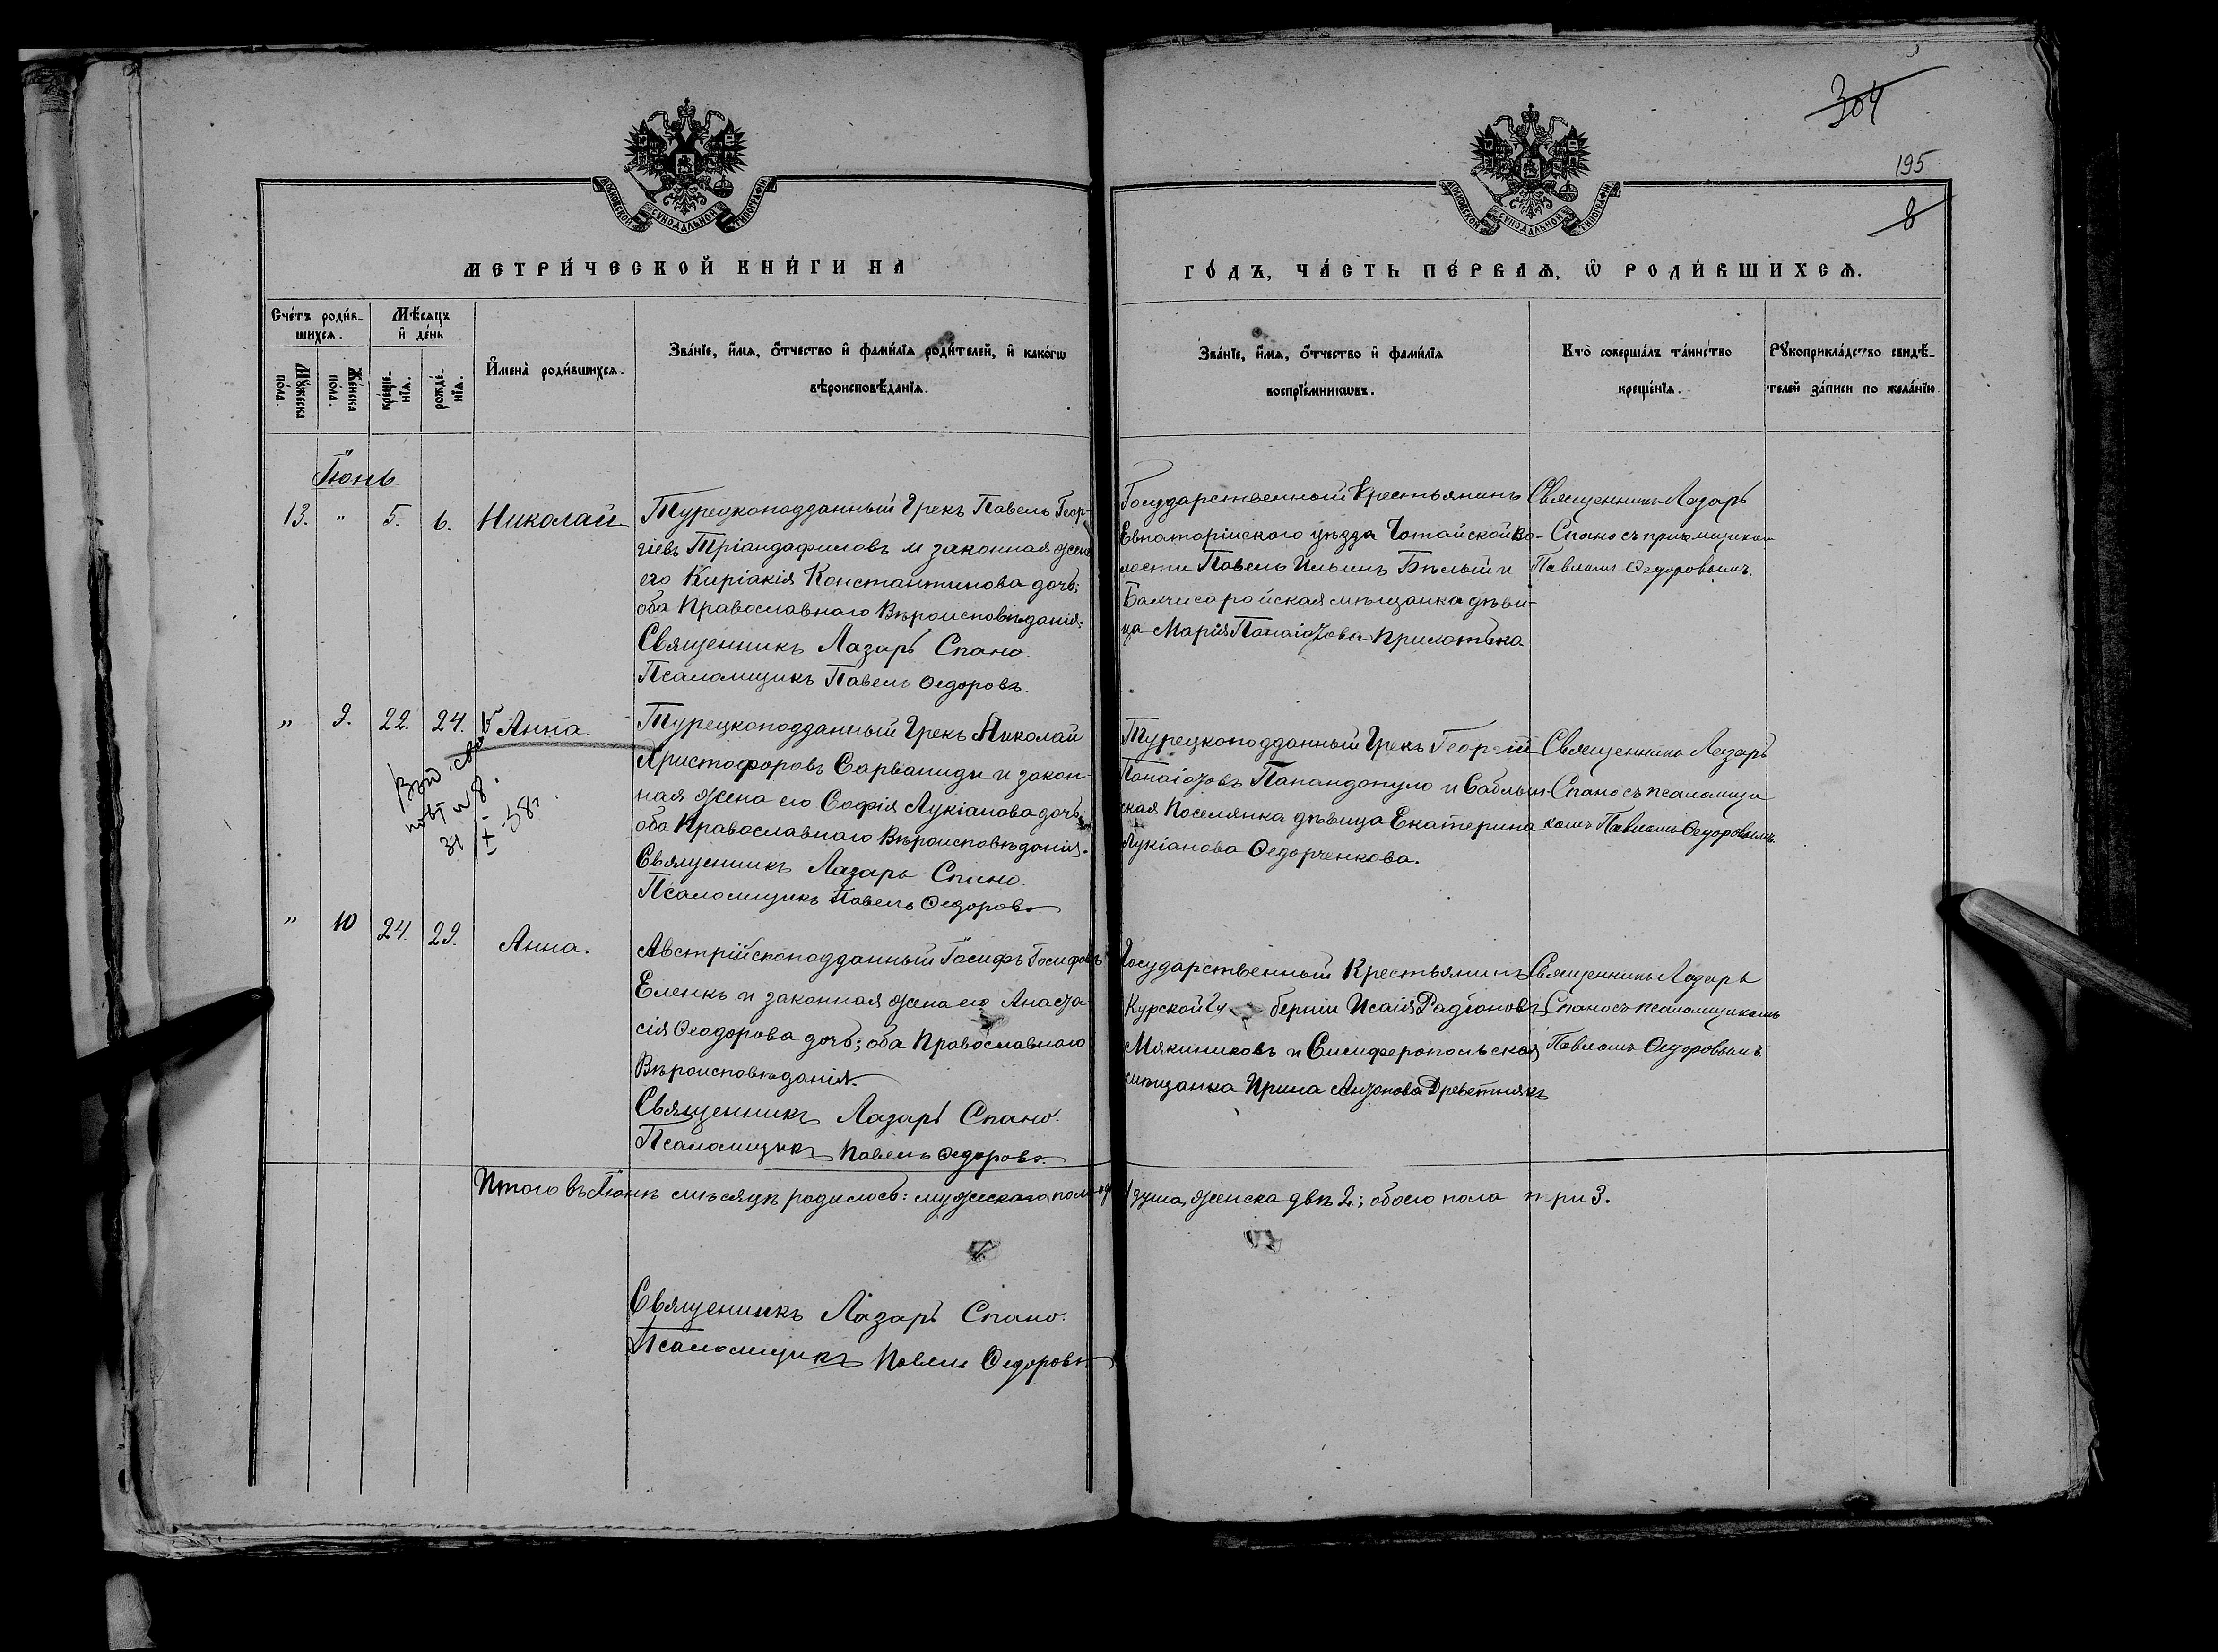 304
195
8
МОСКОВСКОЙ СѴНОДАЛЬНОЙ ТИПОГРАФІИ
МОСКОВСКОЙ СѴНОДАЛЬНОЙ ТИПОГРАФІИ
МЕТРИ́ЧЕСКОЙ КНИ́ГИ НА
ГО́ДЪ, ЧА́СТЬ ПЕ́РВАѦ, Ѡ҆ РОДИ́ВШИХСѦ.
Счетъ роди́в-
шихсѧ.
Мѣсѧцъ
и҆ де́нь
Мꙋжеска
по́ла.
Же́нска
по́ла.
креще-
нїѧ.
рожде-
нїѧ.
И҆мена̀ роди́вшихсѧ.
Зва́нїе, и҆́мѧ, ѻ҆́тчество и҆ фами́лїѧ роди́телей, и҆ како́гѡ
вѣроисповѣ́данїѧ.
Зва́нїе, и҆́мѧ, ѻ҆́тчество и҆ фами́лїѧ
воспрїе́мникѡвъ.
Кто̀ соверша́лъ та́инство
креще́нїѧ.
Рꙋкоприкла́дство свидѣ́-
телей за́писи по жела́нїю.
Іюнь
13. " 5. 6. Николай
Турецкоподданный Грекъ Павелъ Геор-
гіевъ Тріандафиловъ и законная жена
его Киріакія Константинова дочь;
оба Православнаго Вѣроисповѣданія.
Священникъ Лазарь Спано.
Псаломщикъ Павелъ Ѳедоровъ.
Государственный Крестьянинъ
Евпаторійскаго уѣзда Чотайской во-
лости Павелъ Ильинъ Бѣлый и
Бахчисарайская мѣщанка дѣви-
ца Марія Панаіотова
Священникъ Лазарь
Спано съ псаломщикомъ
Павломъ Ѳедоровымъ.
" 9. 22. 24. Анна.
Турецкоподданный Грекъ Николай
Христофоровъ Сарваниди и закон-
ная жена его Софія Лукіанова дочь;
оба Православнаго Вѣроисповѣданія.
Священникъ Лазарь Спано.
Псаломщикъ Павелъ Ѳедоровъ
Турецкоподданный Грекъ Георгій
Панаіотовъ Папандопуло и Саблын-
ская Поселянка дѣвица Екатерина
Лукіанова Ѳедорченкова.
Священникъ Лазарь
Спано съ псаломщи
комъ Павломъ Ѳедоровымъ.
" 10 24. 29. Анна.
Австрійскоподданный Іосифъ Іосифовъ
Еленкъ и законная жена его Анаста-
сія Ѳеодорова дочь; оба Православнаго
Вѣроисповѣданія.
Священникъ Лазарь Спано.
Псаломщикъ Павелъ Ѳедоровъ.
Государственный Крестьянинъ
Курской Гу берніи Исаія Радіоновъ
Мякиниковъ и Симферопольская
мѣщанка Ирина Антонова Древетнякъ
Священникъ Лазарь
Спано съ псаломщикомъ
Павломъ Ѳедоровымъ.
Итого въ Іюнѣ мѣсяцѣ родилось: мужскаго пола одна 1 душа, женска двѣ 2; обоего пола три 3.
Священникъ Лазарь Спано.
Псаломщикъ Павелъ Ѳедоровъ.